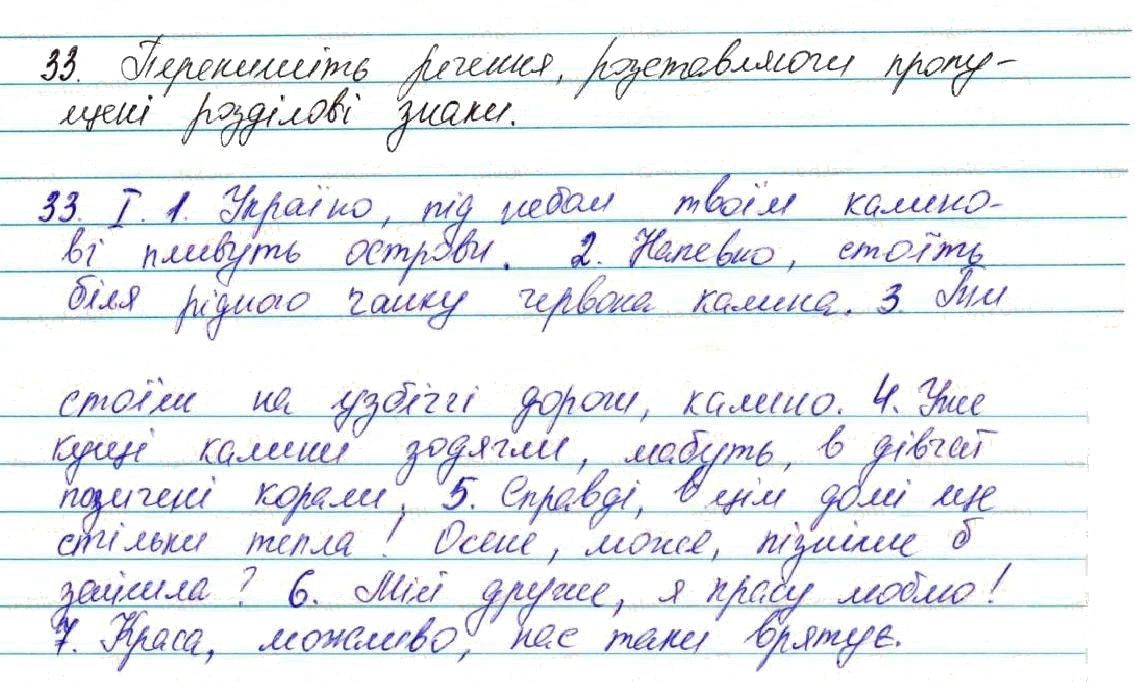 33. Перепишіть речення, розставляючи пропу-
щені розділові знаки.
33. І. 1. Україно, під небом твоїм калино-
ві пливуть острови. 2. Напевно, стоїть
біля рідного ганку червона калина. 3. Ти
стоїш на узбіччі дороги, калино. 4. Уже
кущі калини зодягли, мабуть, в дівчат
позичені корали. 5. Справді, в цім домі ще
стільки тепла! Осене, може, пізніше б
зайшла? 6. Мій друже, я красу люблю!
7. Краса, можливо, нас таки врятує.